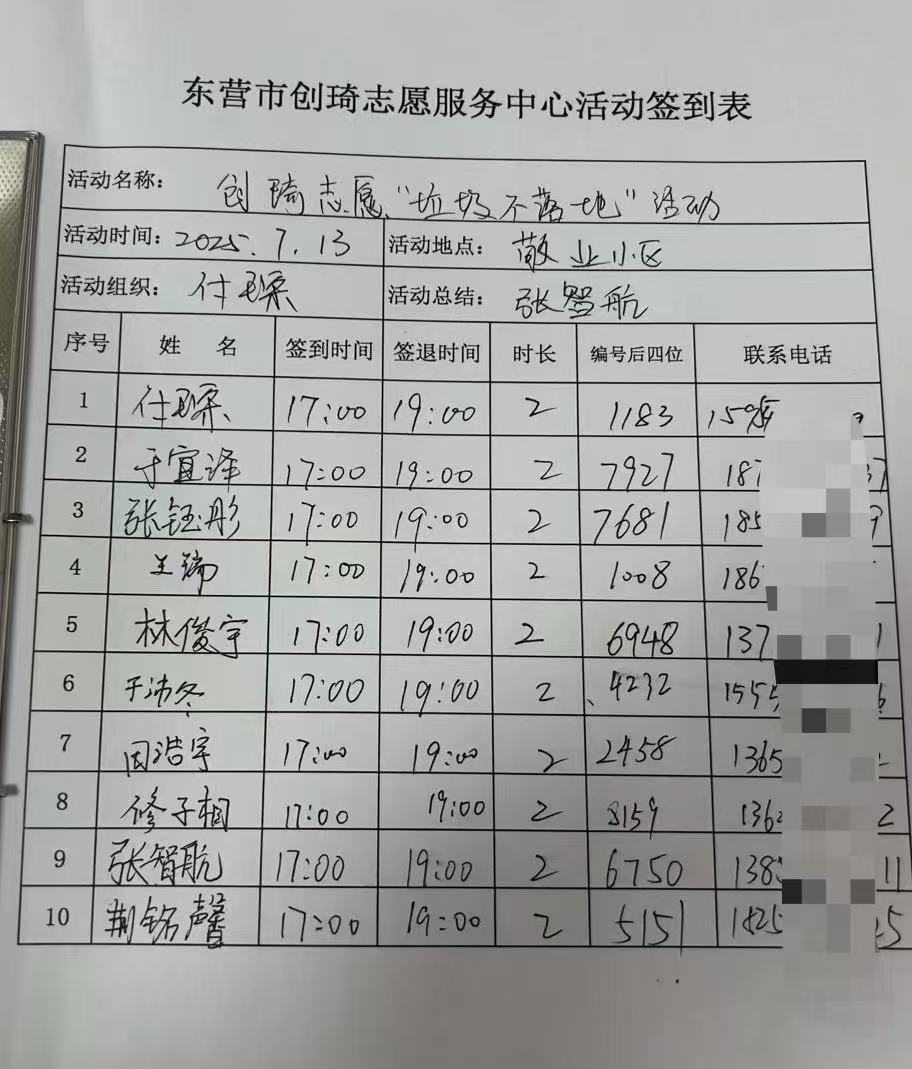 东营市创琦志愿服务中心活动签到表
活动名称： 创琦志愿“垃圾不落地”活动
活动时间：2025.7.13 活动地点： 敬业小区
活动组织： 付 活动总结： 张智航
序号 姓 名 签到时间 签退时间 时长 编号后四位 联系电话
1 付 17:00 19:00 2 1183 159
2 于宜泽 17:00 19:00 2 7927 187 37
3 张钰彤 17:00 19:00 2 7681 185 9
4 王瑞 17:00 19:00 2 1008 186
5 林俊宇 17:00 19:00 2 6948 137 1
6 于沛冬 17:00 19:00 2 4232 1555 6
7 周浩宇 17:00 19:00 2 2458 1365
8 修子桐 17:00 19:00 2 8159 136 2
9 张智航 17:00 19:00 2 6750 138 11
10 荆铭馨 17:00 19:00 2 5151 1825 5